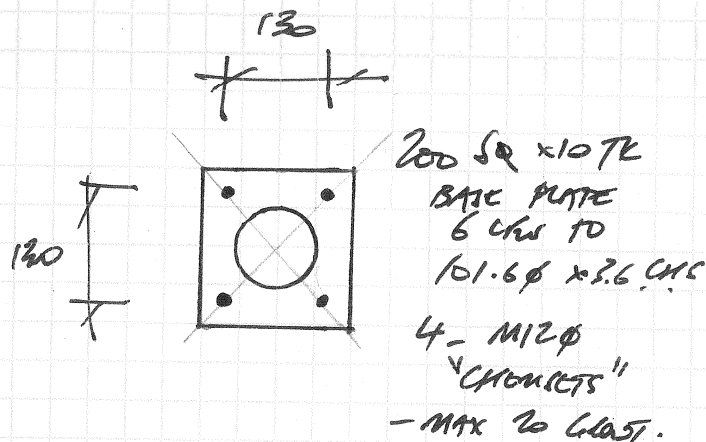 130
130
200 SQ x10 TK
BASE PLATE
6 CFW TO
101.6ø x3.6 CHS
4- M12ø
"CHEMSETS"
- MAX 20 GROUT.